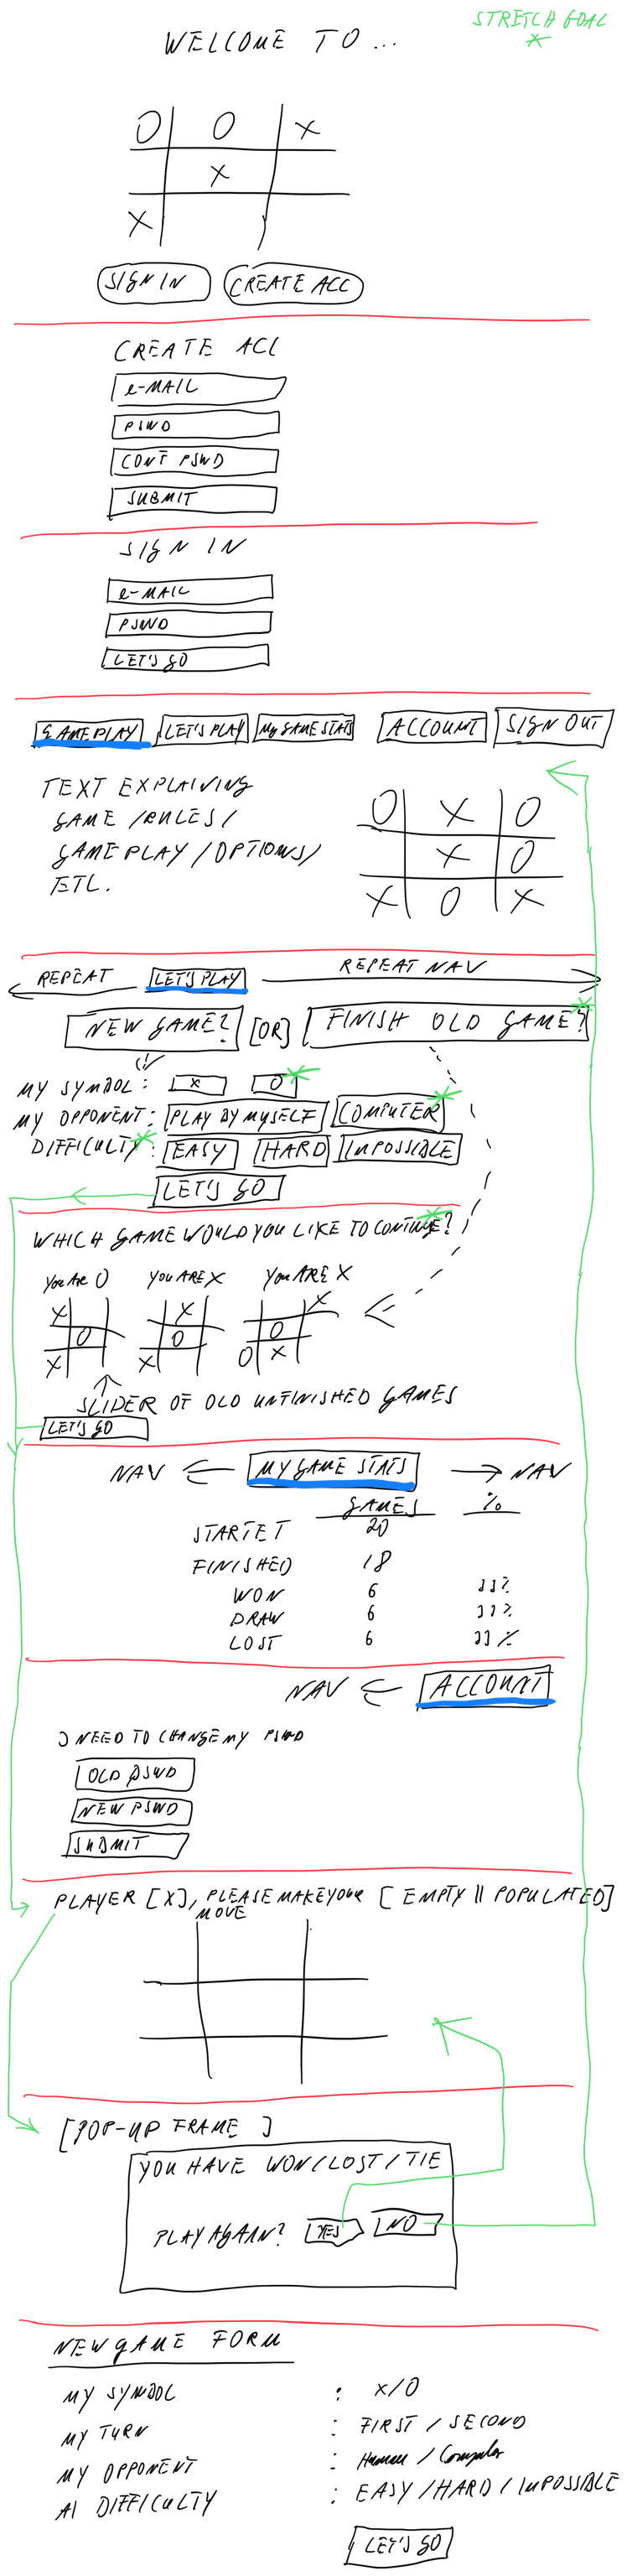 STRETCH GOAL
*
WELCOME TO ...
O O X
X
X
SIGN IN CREATE ACC
CREATE ACC
e-MAIL
PSWD
CONF PSWD
SUBMIT
SIGN IN
e-MAIL
PSWD
LET'S GO
GAMEPLAY LET'S PLAY My GAME STATS ACCOUNT SIGN OUT
TEXT EXPLAINING
GAME /RULES/
GAMEPLAY /OPTIONS/
ETC.
O X O
X O
X O X
REPEAT LET'S PLAY REPEAT NAV
NEW GAME? [OR] FINISH OLD GAME? *
MY SYMBOL: X O *
MY OPPONENT: PLAY BY MYSELF COMPUTER *
DIFFICULTY * : EASY HARD IMPOSSIBLE
LET'S GO
WHICH GAME WOULD YOU LIKE TO CONTINUE? *
You ARE O YOU ARE X YOU ARE X
X X X
O O O
X X O X
SLIDER OF OLD UNFINISHED GAMES
LET'S GO
NAV MY GAME STATS NAV
GAMES %
STARTET 20
FINISHED 18
WON 6 33%
DRAW 6 33%
LOST 6 33%
NAV ACCOUNT
I NEED TO CHANGE MY PSWD
OLD PSWD
NEW PSWD
SUBMIT
PLAYER [X], PLEASE MAKE YOUR [ EMPTY || POPULATED]
MOVE
[POP-UP FRAME ]
YOU HAVE WON/LOST/TIE
PLAY AGAIN? YES NO
NEW GAME FORM
MY SYMBOL : X/O
MY TURN : FIRST / SECOND
MY OPPONENT : Human / Computer
AI DIFFICULTY : EASY /HARD / IMPOSSIBLE
LET'S GO